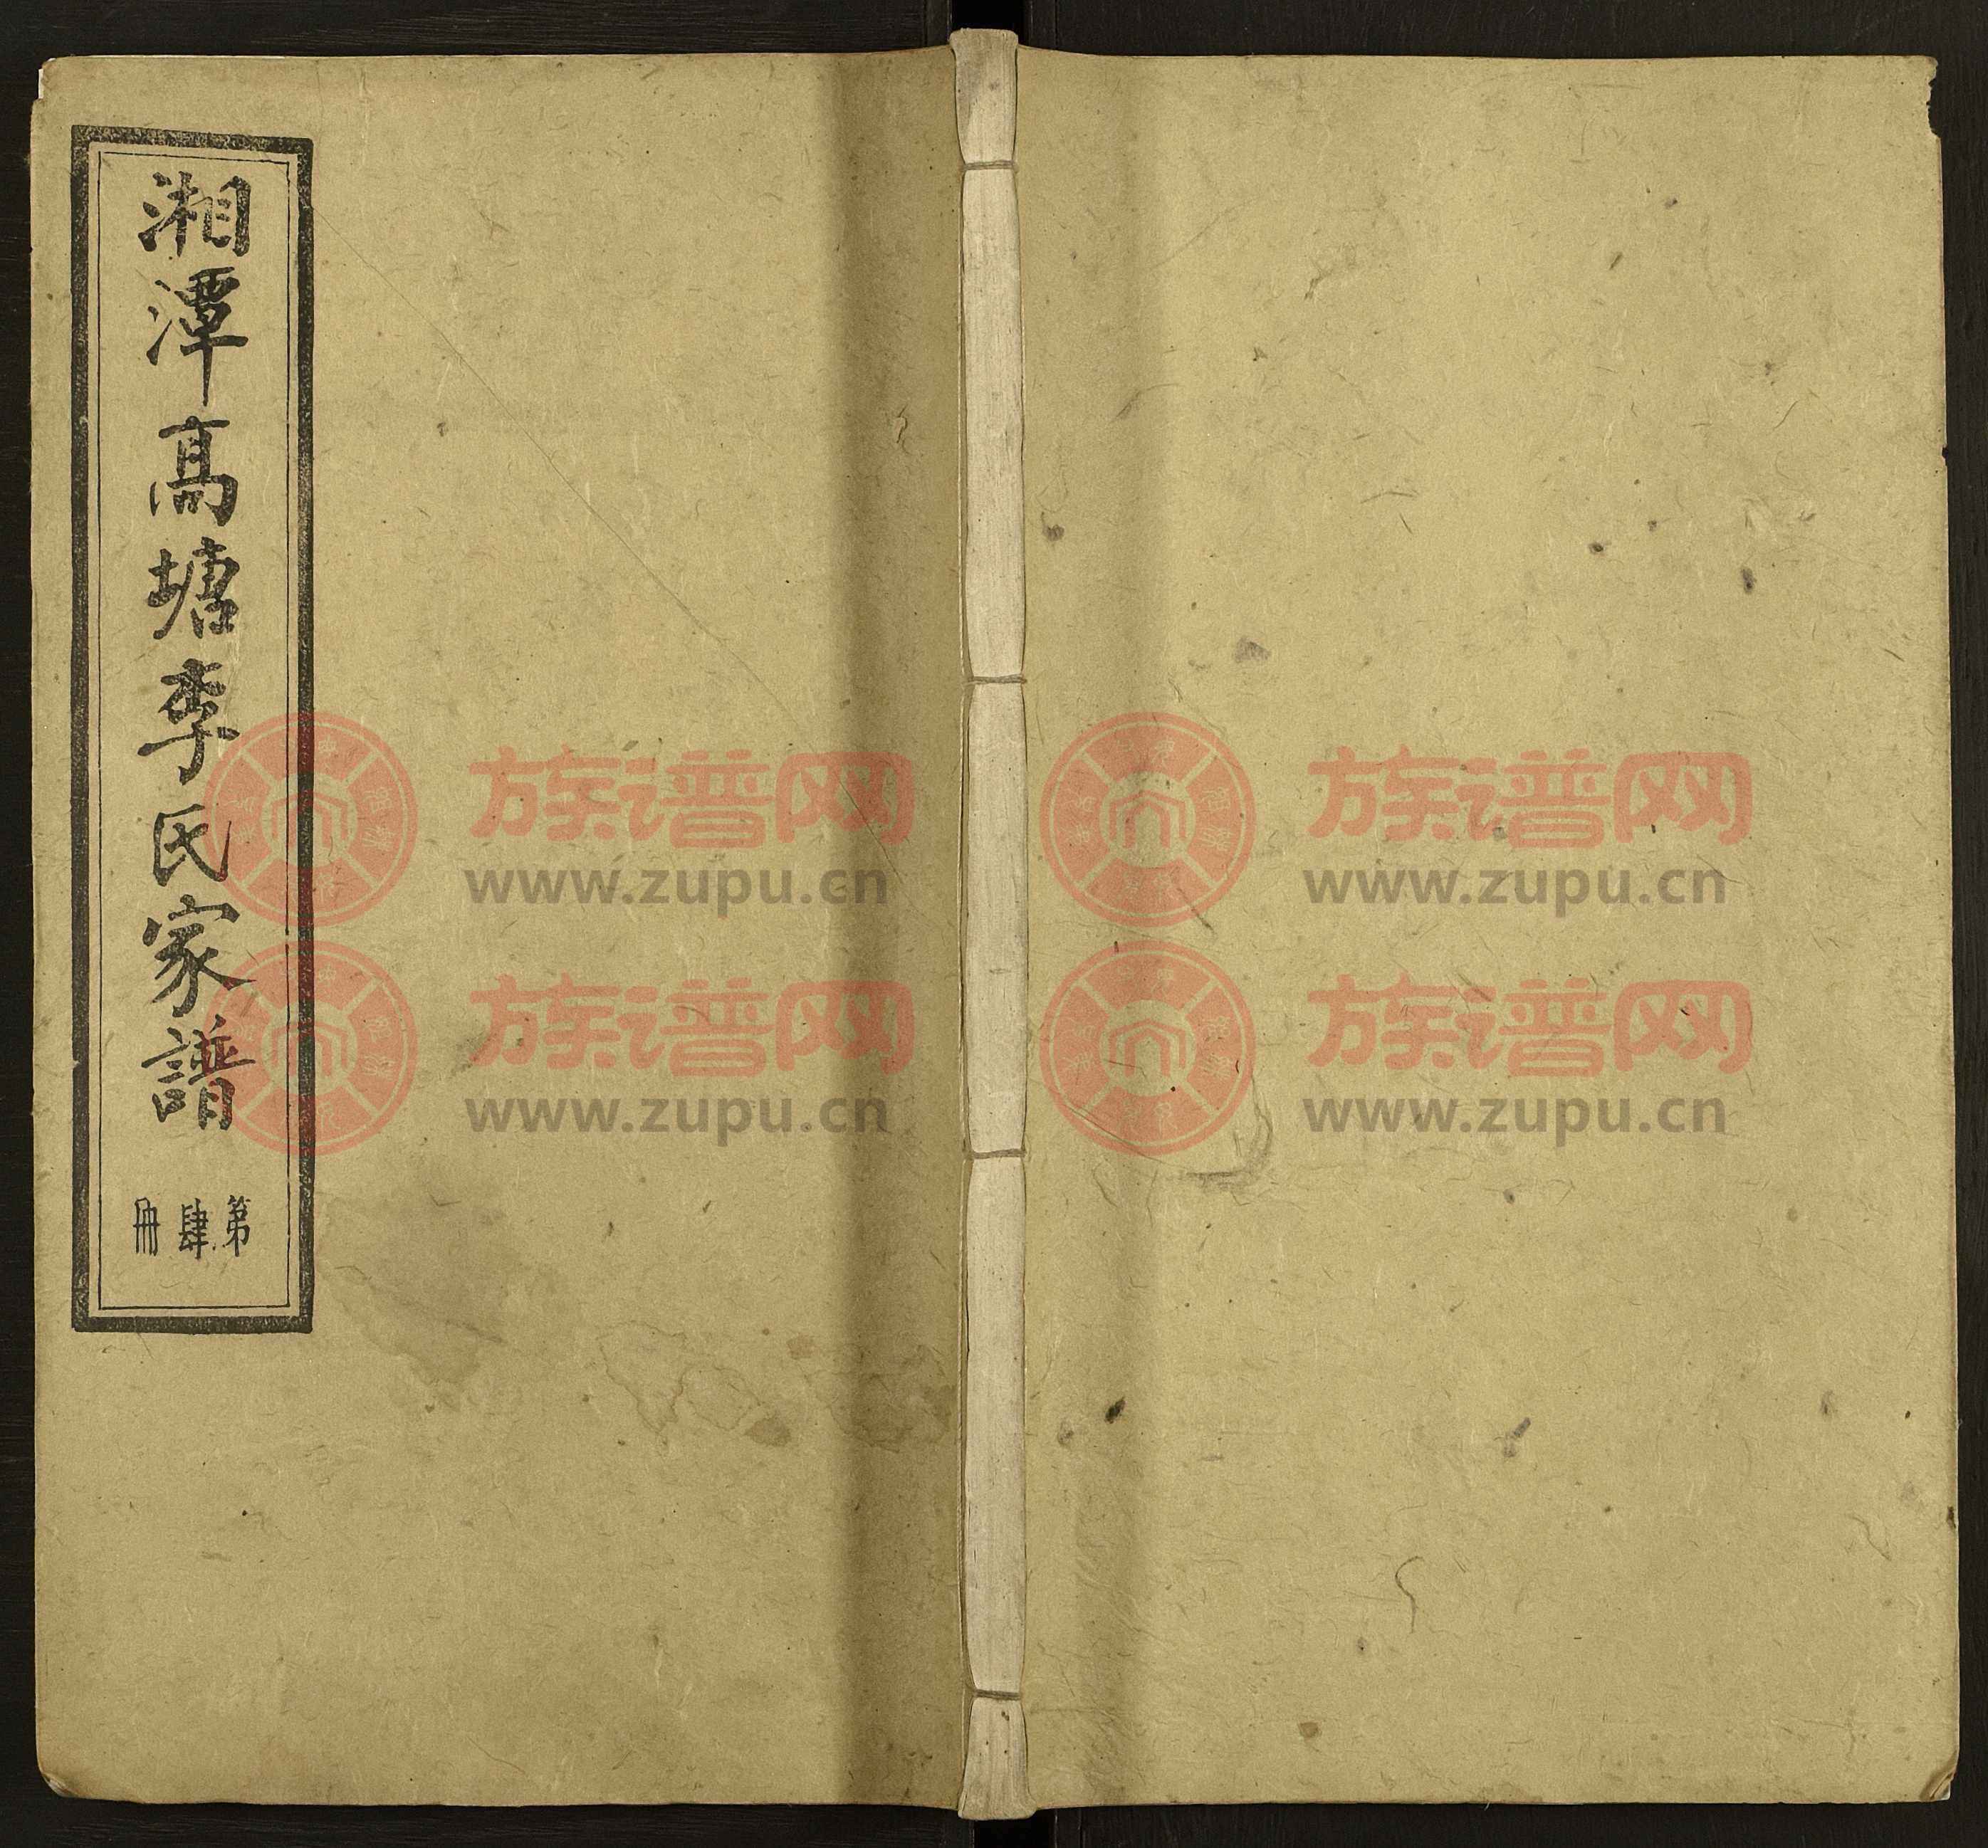 湘潭高塘李氏家譜
第肆冊
族谱网
www.zupu.cn
族谱网
www.zupu.cn
族谱网
www.zupu.cn
族谱网
www.zupu.cn